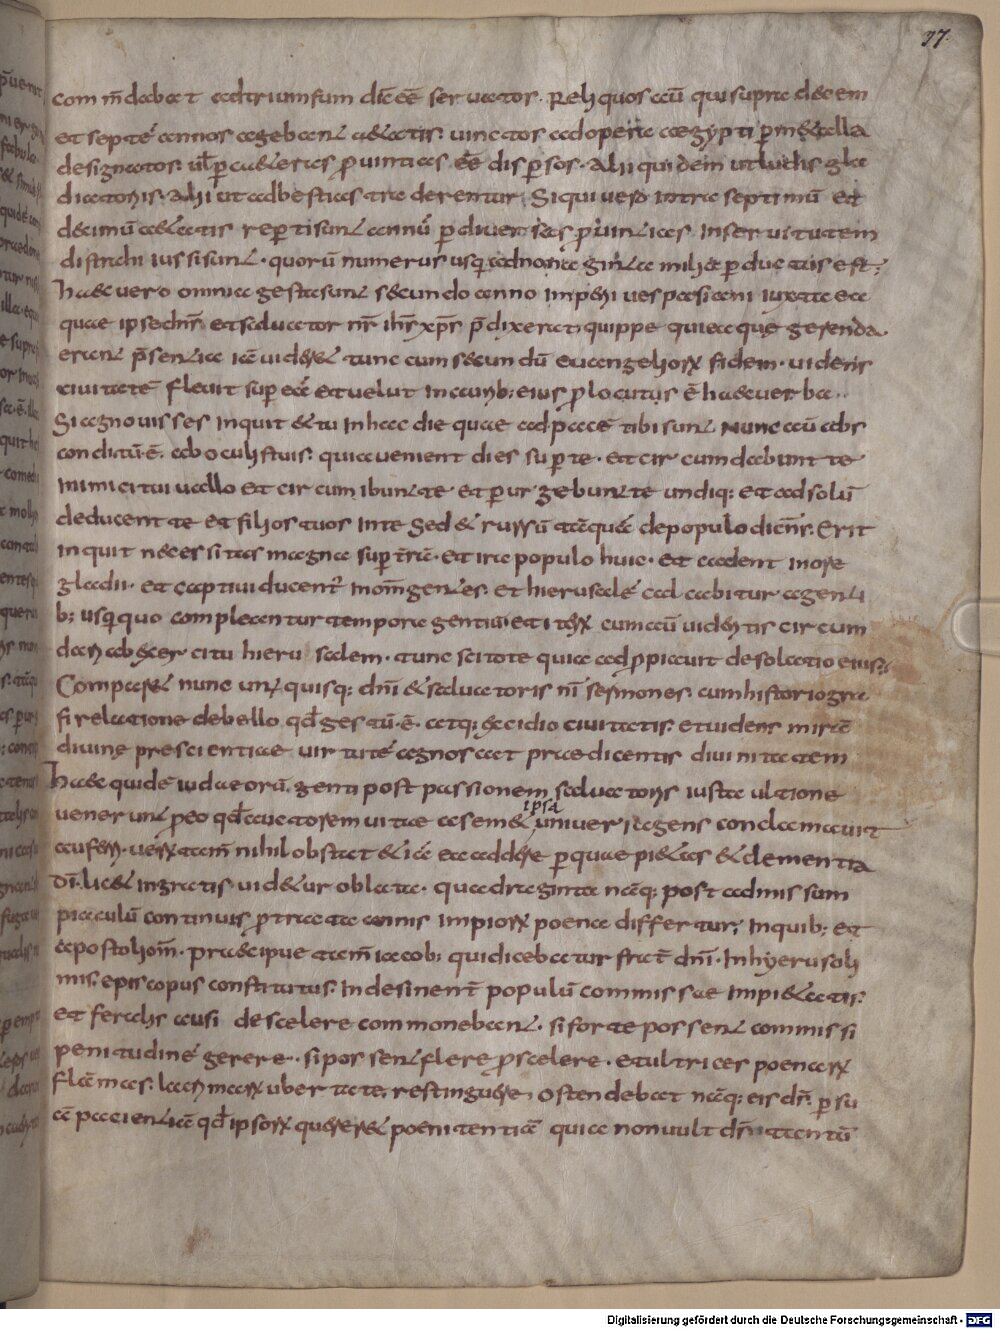 37.
com m̄dabat ad triumfum dicẽẽ servator. Reliquos aũ qui supra decem
et septẽ annos agebant ætatis. vinctos ad operæ ægypti p̄ metalla
designator. vl̄ p̄ cæteras p̄vintias ẽẽ dispersos. alii quidem ut ludis gla
diatoriis. alii ut ad bestias traderentur. Si qui vero intra septimũ et
decimũ ætatis repertisunt annũ p̄ diversas p̄vintias inservitutem
distrahi iussi sunt. quorũ numerus usq; ad nonaginta milia p̄ductus est;
haec vero omnia gesta sunt secundo anno imperii vespasiani iuxta ea
quae ipse dn̄s et salvator nr̄ ih̄s xp̄s p̄dixerat; quippe quia quę gerenda
erant p̄sentia iã viderat tunc cum secundũ evangeliorꝝ fidem. videns
civitatẽ flevit sup̄ eã et velut in aurib; eius p̄locutus ẽ haec verba..
Si agnovisses inquit et tu in hac die quae ad pacẽ tibi sunt. Nunc aũ abs
condita.ẽ. ab oculis tuis. quia venient dies sup̄ te. et circumdabunt te
inimici tui vallo et circumibunt te et p̄urgebunt te undiq; et ad solũ
deducent te et filios tuos in te Sed et rursũ atẽquã de populo dicens. Erit
inquit necessitas magna sup̄ t̄rã. et ira populo huic. et cadent in ore
gladii. et captivi ducent̄ in om̄ gentes. et hierusalẽ calcabitur a genti
b; usq; quo compleantur tempora gentiũ et iterꝝ cum aũ videritis circum
dari ab exercitu hierusalem. tunc scitote quia adp̄piavit desolatio eius;
Comparet nunc unusquisq; dn̄i et salvatoris nr̄i sermones. cum historiogra
fi relatione de bello qd̄ gestũ.ẽ. atq; excidio civitatis. et videns mirã
divinę prescientiae virtutẽ agnoscat praedicentis divinitatem
haec quidẽ iudaeorũ. genti post passionem salvatoris iusta ultione
venerunt p̄eo qd̄ auctorem vitae a semet ipsa universa gens condemnavit
auferri. verꝝ atam̄ nihil obstat etiã ea addere p̄quae pietas et clementia
dī. licet ingratis videtur oblata. quadraginta nãq; post admissum
piaculũ continuis p̄tracta annis impiorꝝ poena differtur; in quib; et
apostoli om̄. praecipue atam̄ iacob; qui dicebatur frat̄ dn̄i. In hyerusoli
mis. episcopus constitutus. Indesinent̄ populũ commissae impietatis;
et feralis ausi de scelere commonebant. si forte possent commissi
penitudinẽ gerere.. si possent flere p̄ scelere. et ultrices poenarꝝ
flãmas. lacrimarꝝ ubertate. restinguere. Ostendebat nãq; eis dn̄s. p̄ su
ã pacientiã qd̄ ipsorꝝ quęreret poenitentiã quia non vult dn̄s atantũ
ipsa
Digitalisierung gefördert durch die Deutsche Forschungsgemeinschaft - DFG